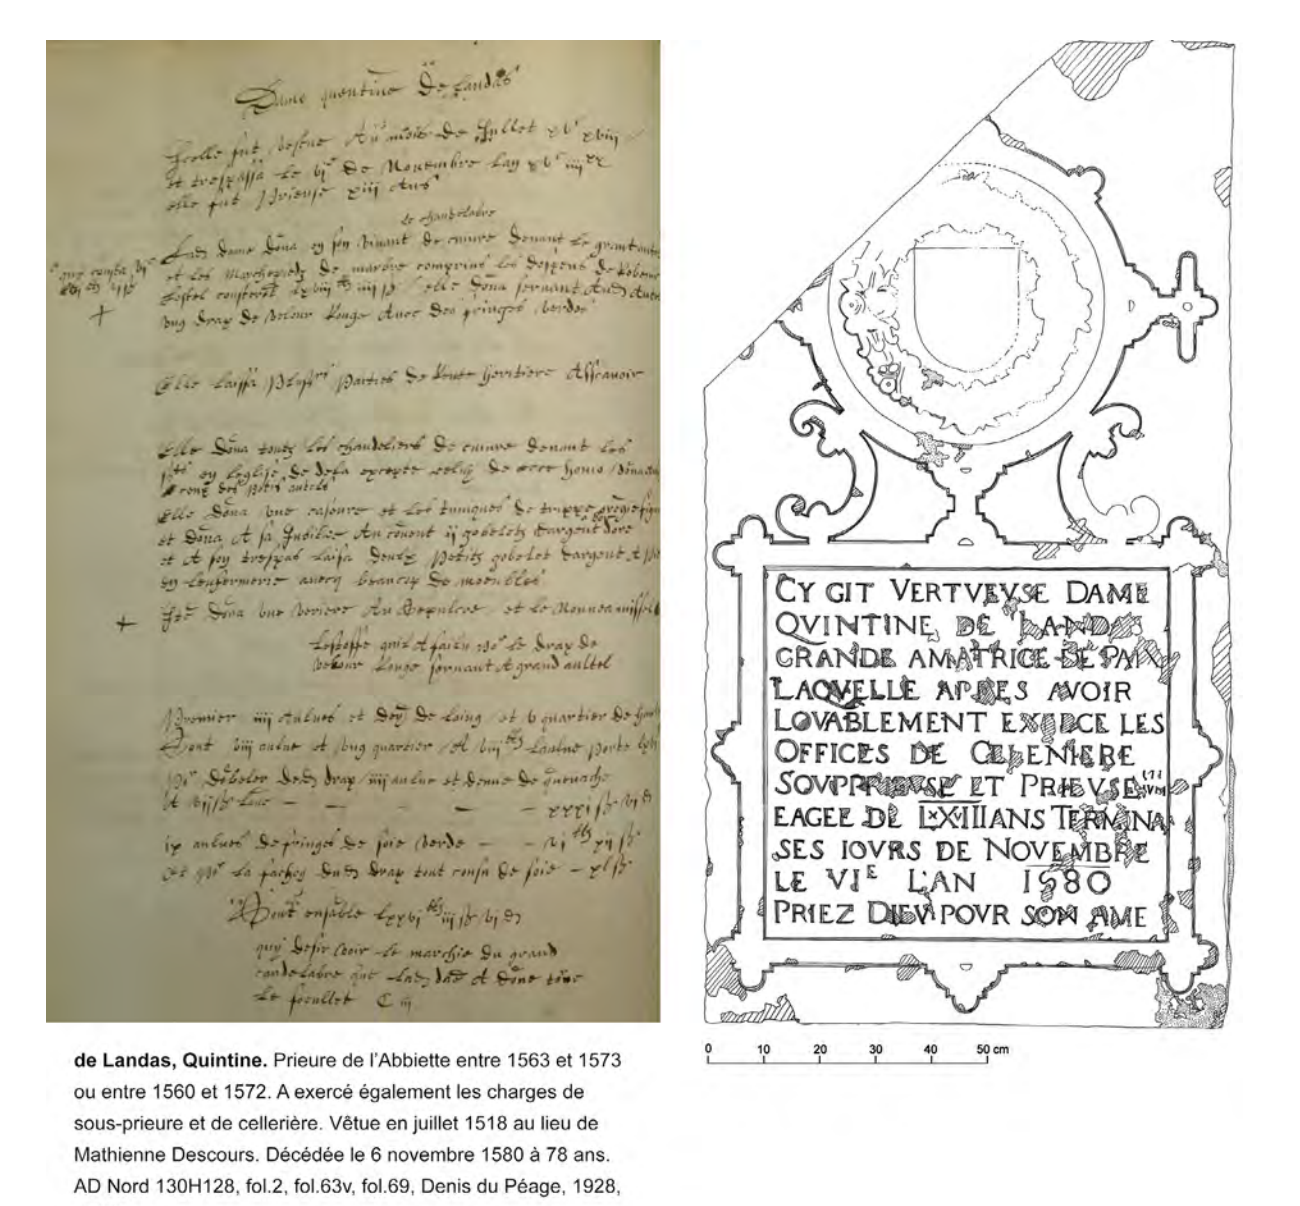 Dame quentine de Landas
Icelle fut vestue Au mois de Jullet xvᶜ xviii
et trespassa le viᵉ de Novembre Lan xvᶜ iiiiˣˣ
elle fut Prieuse xiii Ans
le chandelabre
Ladᵉ dame dōna en son vivant de cuivre devant le grant
et les marchepietz de marbre comprins les despens de
ung drap de velour Rouge Avec des fringes verdes
Elle laissa Plusʳˢ Parties de Rente heritiere Assavoir
Elle dōna toutz les chandeliers de cuivre devant les
en leglise de dela excepte celuy de ecce homo
des petis autels
Elle dōna une casure et les tuniques de trippe
et dōna A sa Jubilee Au couvent ii gobeletz dargent dore
et A son trespas laissa deulx petitz gobelet dargent A
en lenfermerie avecq beaucop de meubles
dōna une veriere Au Sepulcre et le Nouveau missel
Lestoffe quil A fallu pʳ le drap de
velour Rouge servant A grand aultel
Premier iiii Aulnes et demy de loing et v quartier de
Dont viii aulne et ung quartier A viii Laulne porte
Pʳ doubler drap iiii aulne et demie de
ix aulnes de fringes de soie verde
Et pʳ la fachon dudᵗ drap tout cousu de soie
quy desir veoir le marchie du grand
candelabre que dōne
Le foeullet C iii
CY GIT VERTVEVSE DAME
QVINTINE DE LANDAS
GRANDE AMATRICE DE PAIX
LAQVELLE APRES AVOIR
LOVABLEMENT EXERCE LES
OFFICES DE CELENIERE
SOVPPRIEVSE ET PRIEVSE
EAGEE DE LXXVIII ANS TERMINA
SES IOVRS DE NOVEMBRE
LE VIᴱ L'AN 1580
PRIEZ DIEV POVR SON AME
0 10 20 30 40 50 cm
de Landas, Quintine. Prieure de l'Abbiette entre 1563 et 1573
ou entre 1560 et 1572. A exercé également les charges de
sous-prieure et de cellerière. Vêtue en juillet 1518 au lieu de
Mathienne Descours. Décédée le 6 novembre 1580 à 78 ans.
AD Nord 130H128, fol.2, fol.63v, fol.69, Denis du Péage, 1928,